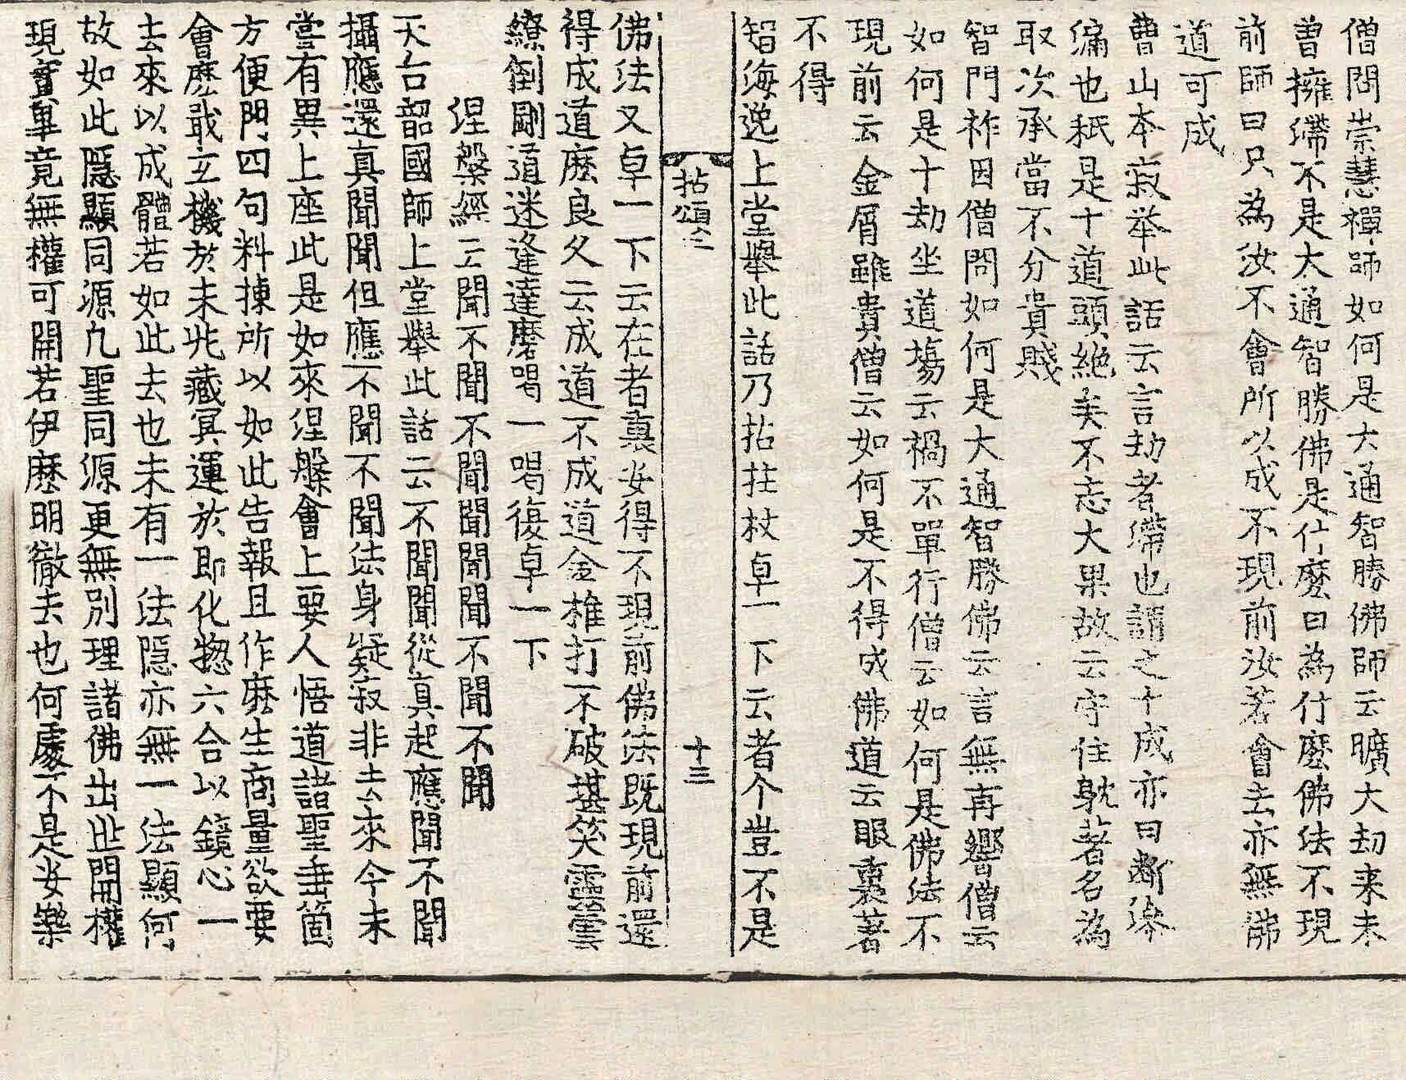 僧問崇慧禪師如何是大通智勝佛師云曠大劫来未
曾擁滯不是大通智勝佛是什麽曰為什麽佛法不現
前師曰只為汝不會所以成不現前汝若會去亦無佛
道可成
曹山本寂举此話云言劫者滯也謂之十成亦曰斷滲
漏也秖是十道頭絶矣不忘大果故云守住躭著名為
取次承當不分貴賤
智門祚因僧問如何是大通智勝佛云言無再響僧云
如何是十劫坐道塲云禍不單行僧云如何是佛法不
現前云金屑雖貴僧云如何是不得成佛道云眼裏著
不得
智海逸上堂舉此話乃拈拄杖卓一下云者个豈不是
拈頌二
十三
佛法又卓一下云在者裏安得不現前佛法既現前還
得成道麽良久云成道不成道金椎打不破堪笑靈雲
繚倒剛道迷逢達磨喝一喝復卓一下
涅槃經云聞不聞不聞聞聞聞不聞不聞
天台韶國師上堂舉此話云不聞聞從真起應聞不聞
攝應還真聞聞但應不聞不聞法身凝寂非去來今未
甞有異上座此是如來涅槃會上要人悟道諸聖垂箇
方便門四句料揀所以如此告報且作麽生商量欲要
會麽戢玄機於未兆藏冥運於即化揔六合以鏡心一
去來以成體若如此去也未有一法隠亦無一法顯何
故如此隠顯同源凡聖同源更無別理諸佛出世開權
現實畢竟無權可開若伊麽明徹去也何處不是安樂